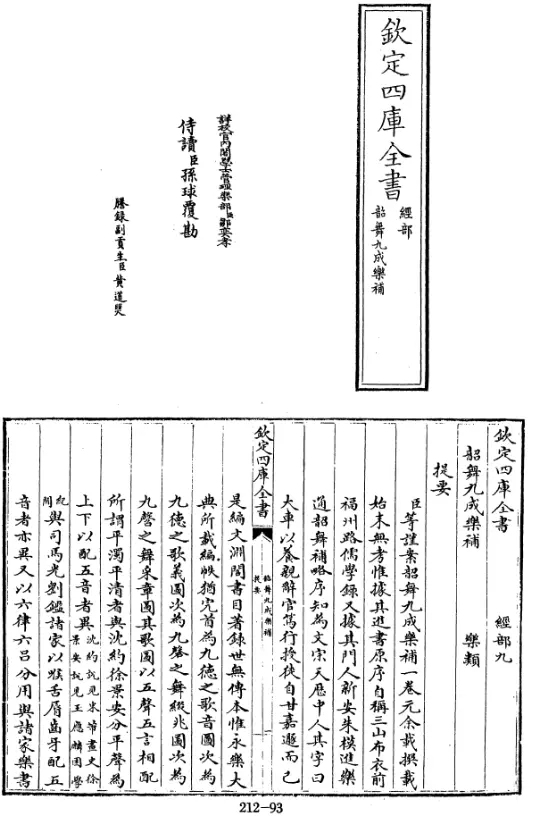 欽定四庫全書
經部
韶舞九成樂補
詳校官內閣學士管理樂部臣鄒奕孝
侍讀臣孫球覆勘
謄錄副貢生臣黄道煚
欽定四庫全書
經部九
韶舞九成樂補
樂類
提要
臣等謹案韶舞九成樂補一卷元余載撰載
始末無考惟據其進書原序自稱三山布衣前
福州路儒學録又據其門人新安朱模進樂
通韶舞補略序知為文宗天厯中人其字曰
大車以養親辭官篤行授徒自甘嘉遯而已
欽定四庫全書
韶舞九成樂補
提要
一
是編文淵閣書目著録世無傳本惟永樂大
典所載編帙猶完首為九德之歌音圖次為
九德之歌義圖次為九磬之舞綴兆圖次為
九磬之舞采章圖其歌圖以五聲五言相配
所謂平濁平清者與沈約徐景安分平聲為
上下以配五音者異沈約說見米芾畫史徐
景安說見王應麟困學
紀
聞與司馬光劉鑑諸家以喉舌唇齒牙配五
音者亦異又以六律六吕分用與諸家樂書
212-93